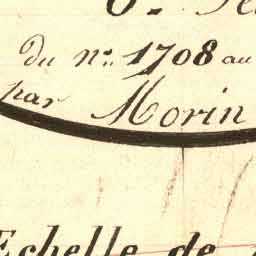 du n.º 1708 au
par Morin
Echelle de